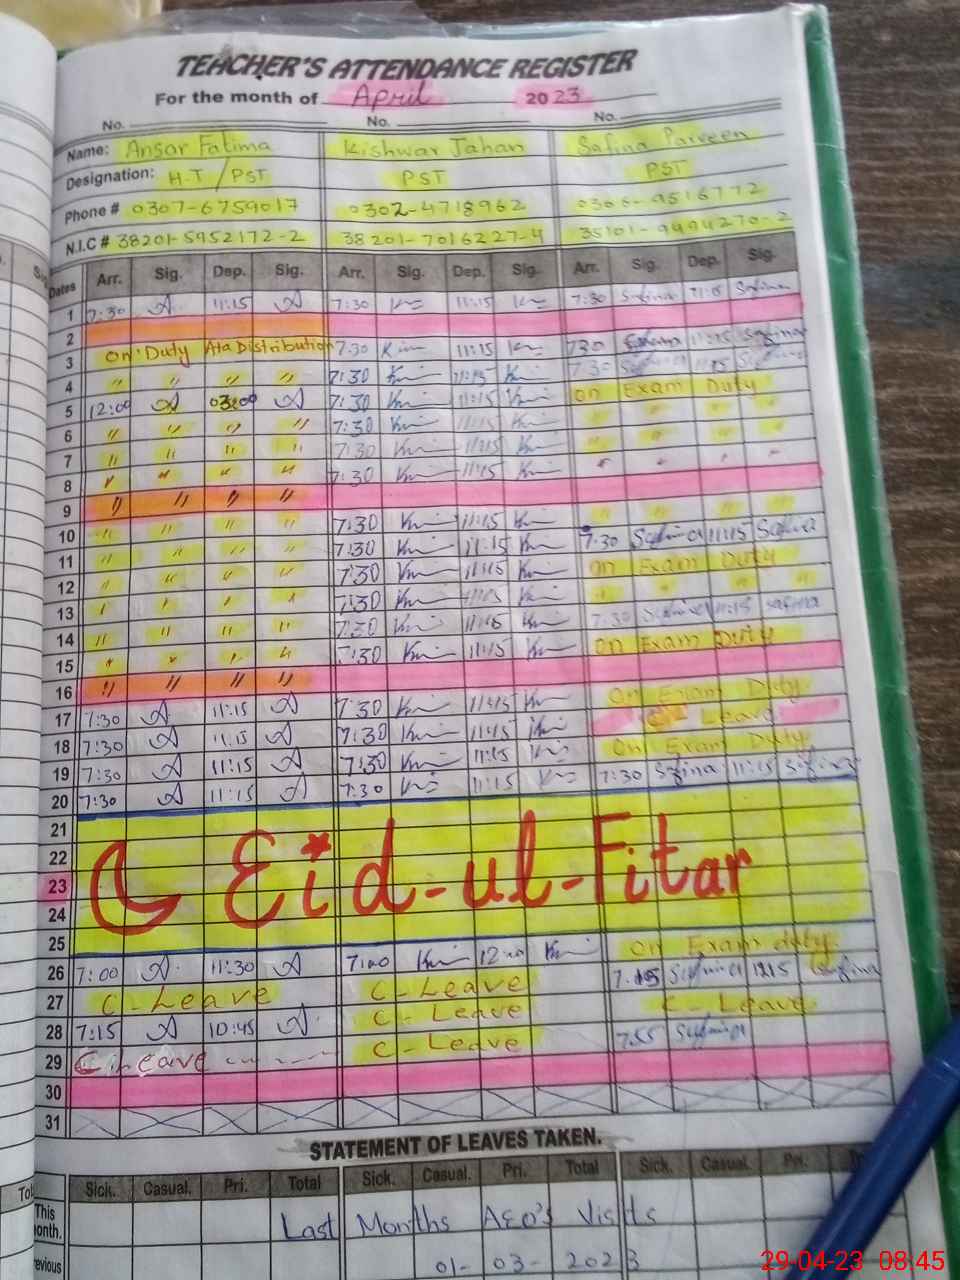 TEACHER'S ATTENDANCE REGISTER
For the month of April 2023
No. No. No.
Name: Ansar Fatima Kishwar Jahan Safina Parveen
Designation: H.T / PST PST PST
Phone # 0307-6759017 0302-4718962 0306-9516772
N.I.C # 38201-5952172-2 38201-7016227-4 35101-9994270-2
Dates Arr. Sig. Dep. Sig. Arr. Sig. Dep. Sig. Arr. Sig. Dep. Sig.
1 7:30 A 11:15 A 7:30 11:15 7:30 Safina 11:15 Safina
2
3 On Duty Ata Distribution 7:30 11:15 7:30 Safina 11:15 Safina
4 " " " " 7:30 11:15 7:30 Safina 11:15 Safina
5 12:00 A 03:00 A 7:30 11:15 On Exam Duty
6 " " " " 7:30 11:15 " " " "
7 " " " " 7:30 11:15 " " " "
8 " " " " 7:30 11:15 " " " "
9 " " " "
10 " " " " 7:30 11:15 " " " "
11 " " " " 7:30 11:15 7:30 Safina 11:15 Safina
12 " " " " 7:30 11:15 On Exam Duty
13 " " " " 7:30 11:15 " " " "
14 " " " " 7:30 11:15 7:30 Safina 11:15 Safina
15 " " " " 7:30 11:15 On Exam Duty
16 " " " "
17 7:30 A 11:15 A 7:30 11:15 On Exam Duty
18 7:30 A 11:15 A 7:30 11:15 Leave
19 7:30 A 11:15 A 7:30 11:15 On Exam Duty
20 7:30 A 11:15 A 7:30 11:15 7:30 Safina 11:15 Safina
21
22 Eid-ul-Fitar
23
24
25
26 7:00 A 11:30 A 7:00 12:00 On Exam duty
27 C-Leave C-Leave Safina 1215 Safina
28 7:15 A 10:45 A C-Leave C-Leave
29 C.Leave C-Leave 7:55 Safina
30
31
STATEMENT OF LEAVES TAKEN.
Sick. Casual. Pri. Total Sick. Casual. Pri. Total Sick. Casual. Pri.
This month. Last Months AEO's Visits
01-03-2023
29-04-23 08:45